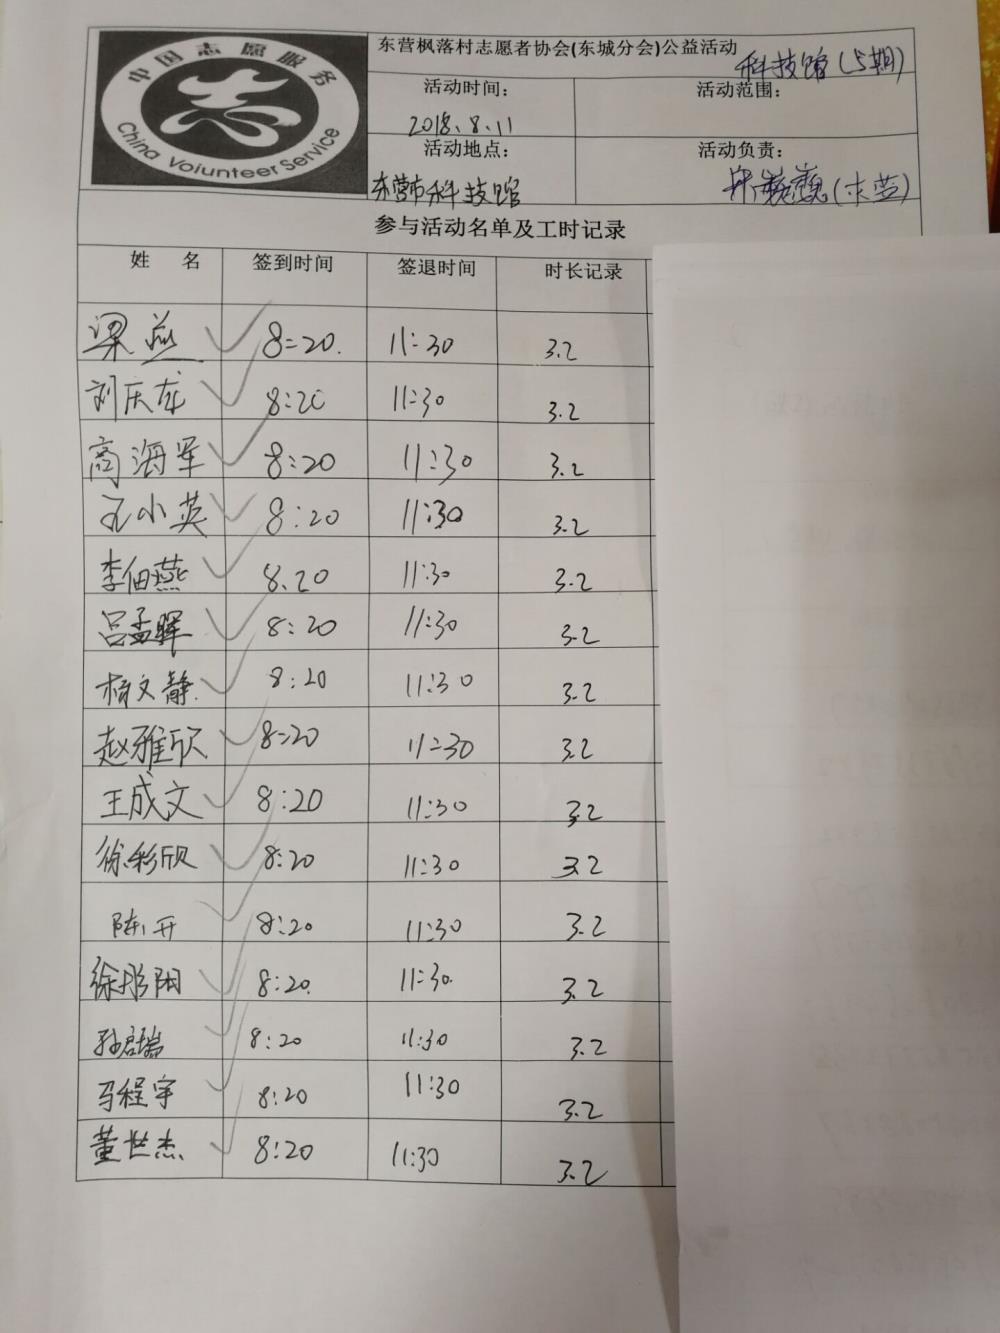 中国志愿服务
China Volunteer Service
东营枫落村志愿者协会(东城分会)公益活动
科技馆(5期)
活动时间: 活动范围:
2018.8.11
活动地点: 活动负责:
东营市科技馆
参与活动名单及工时记录
姓 名 签到时间 签退时间 时长记录
梁燕 8:20. 11:30 3.2
刘庆龙 8:20 11:30 3.2
商海军 8:20 11:30 3.2
孔小英 8:20 11:30 3.2
李佃燕 8.20 11:30 3.2
吕孟晖 8:20 11:30 3.2
杨文静. 8:20 11:30 3.2
赵雅欣 8:20 11:30 3.2
王成文 8:20 11:30 3.2
徐彩欣 8:20 11:30 3.2
陈开 8:20 11:30 3.2
徐彤阳 8:20. 11:30. 3.2
孙启瑞 8:20 11:30 3.2
马程宇 8:20 11:30 3.2
董世杰 8:20 11:30 3.2